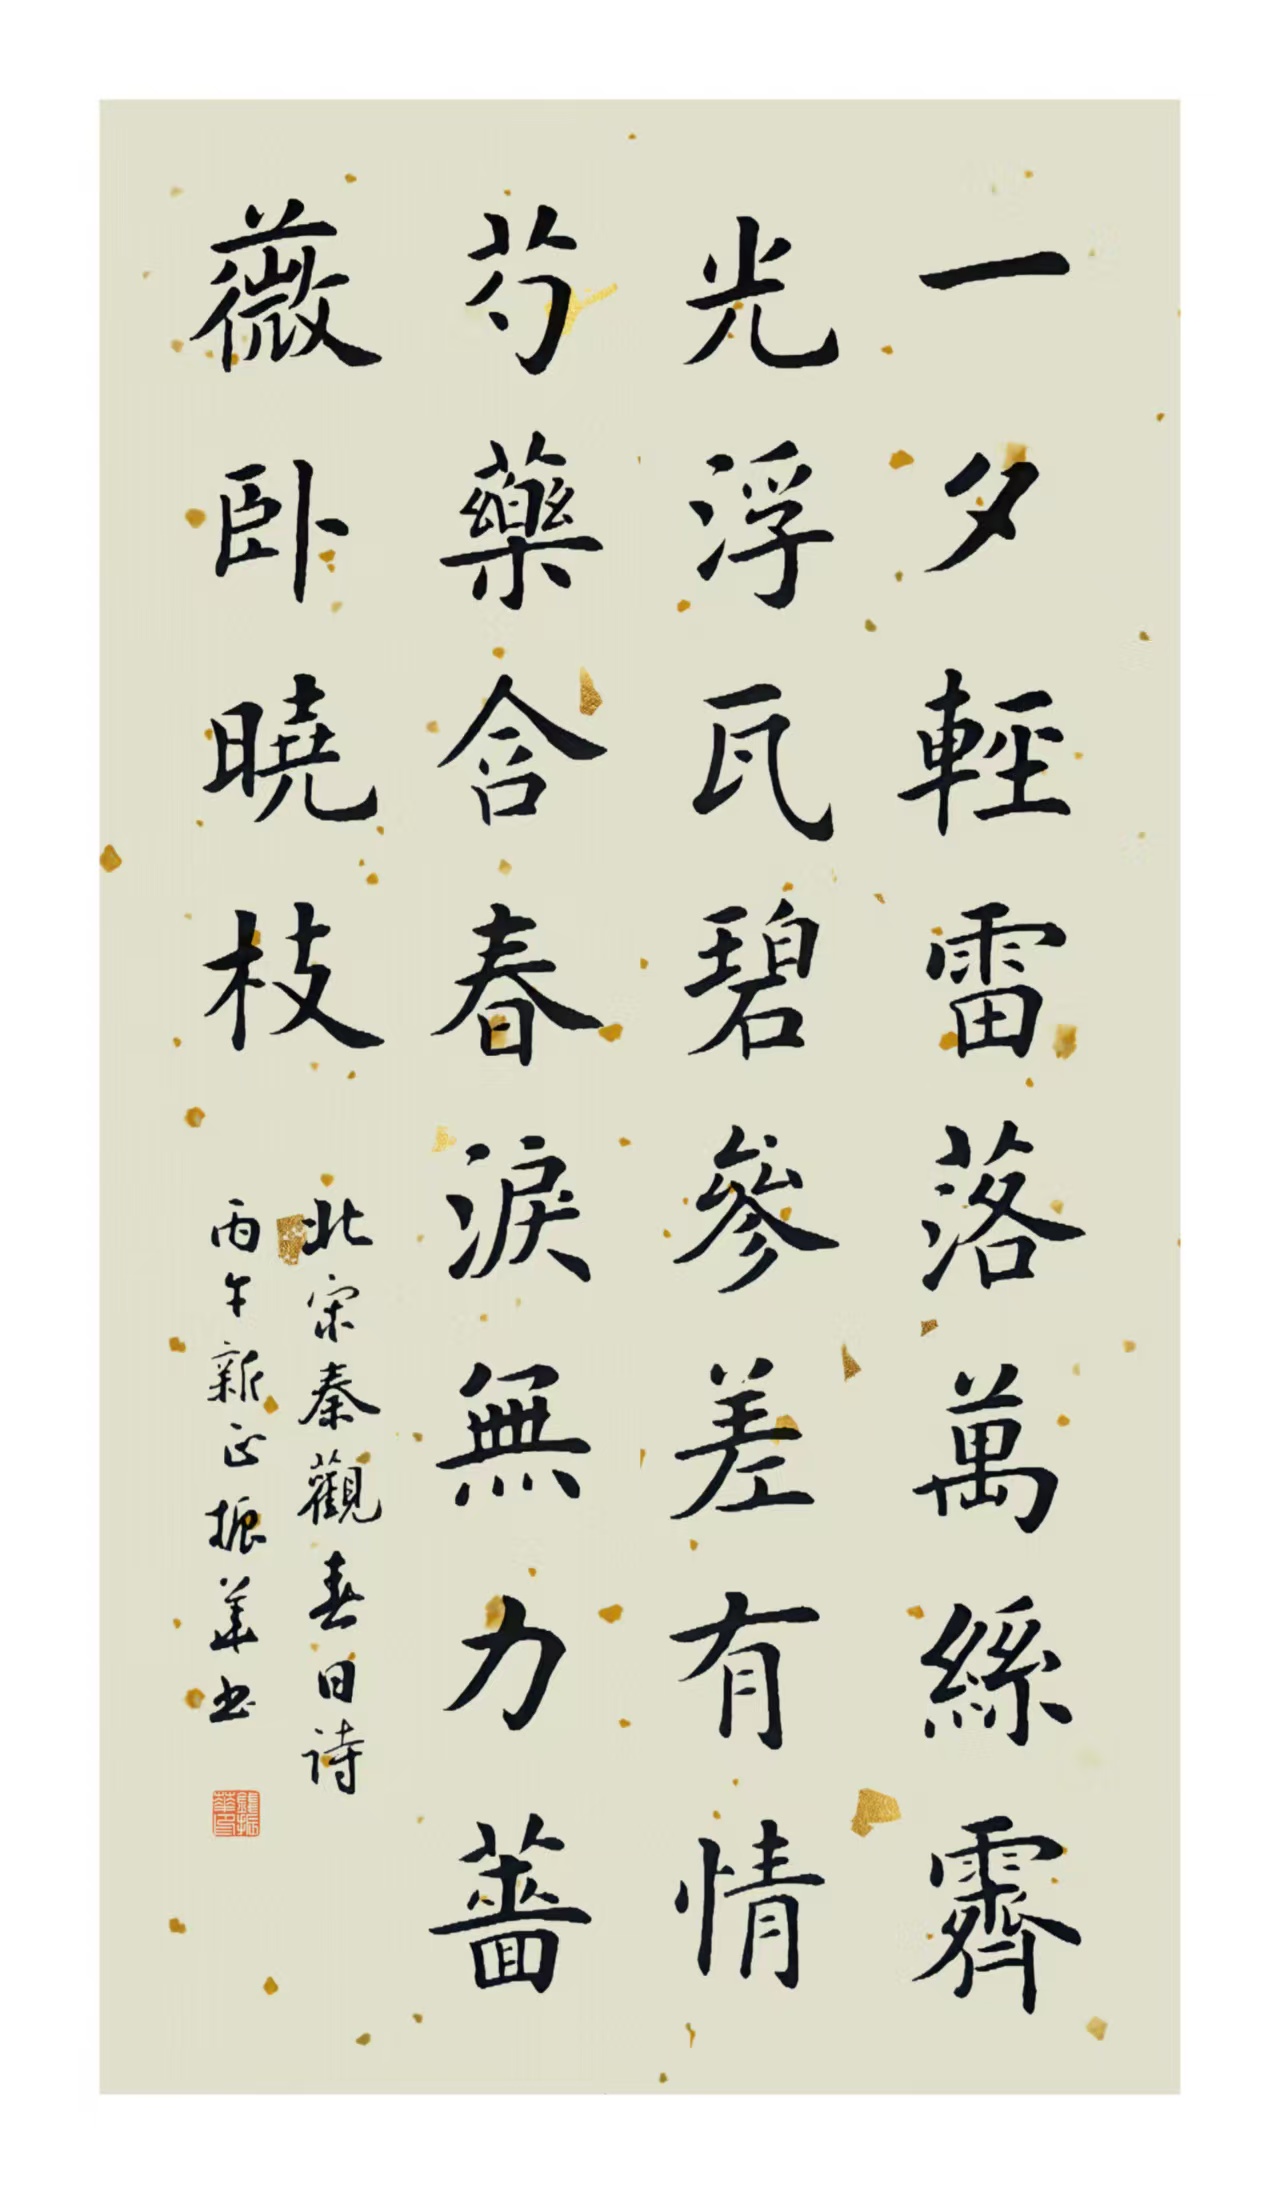 一夕輕雷落萬絲霽
光浮瓦碧參差有情
芍藥含春淚無力薔
薇卧曉枝
北宋秦觀春日詩
丙午新正振華书
龔振華印